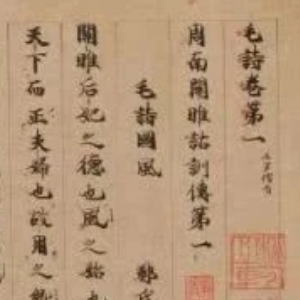 毛詩卷第一
周南關雎詁訓傳第一
毛詩國風 鄭氏
關雎后妃之德也風之始也
天下而正夫婦也故用之鄉